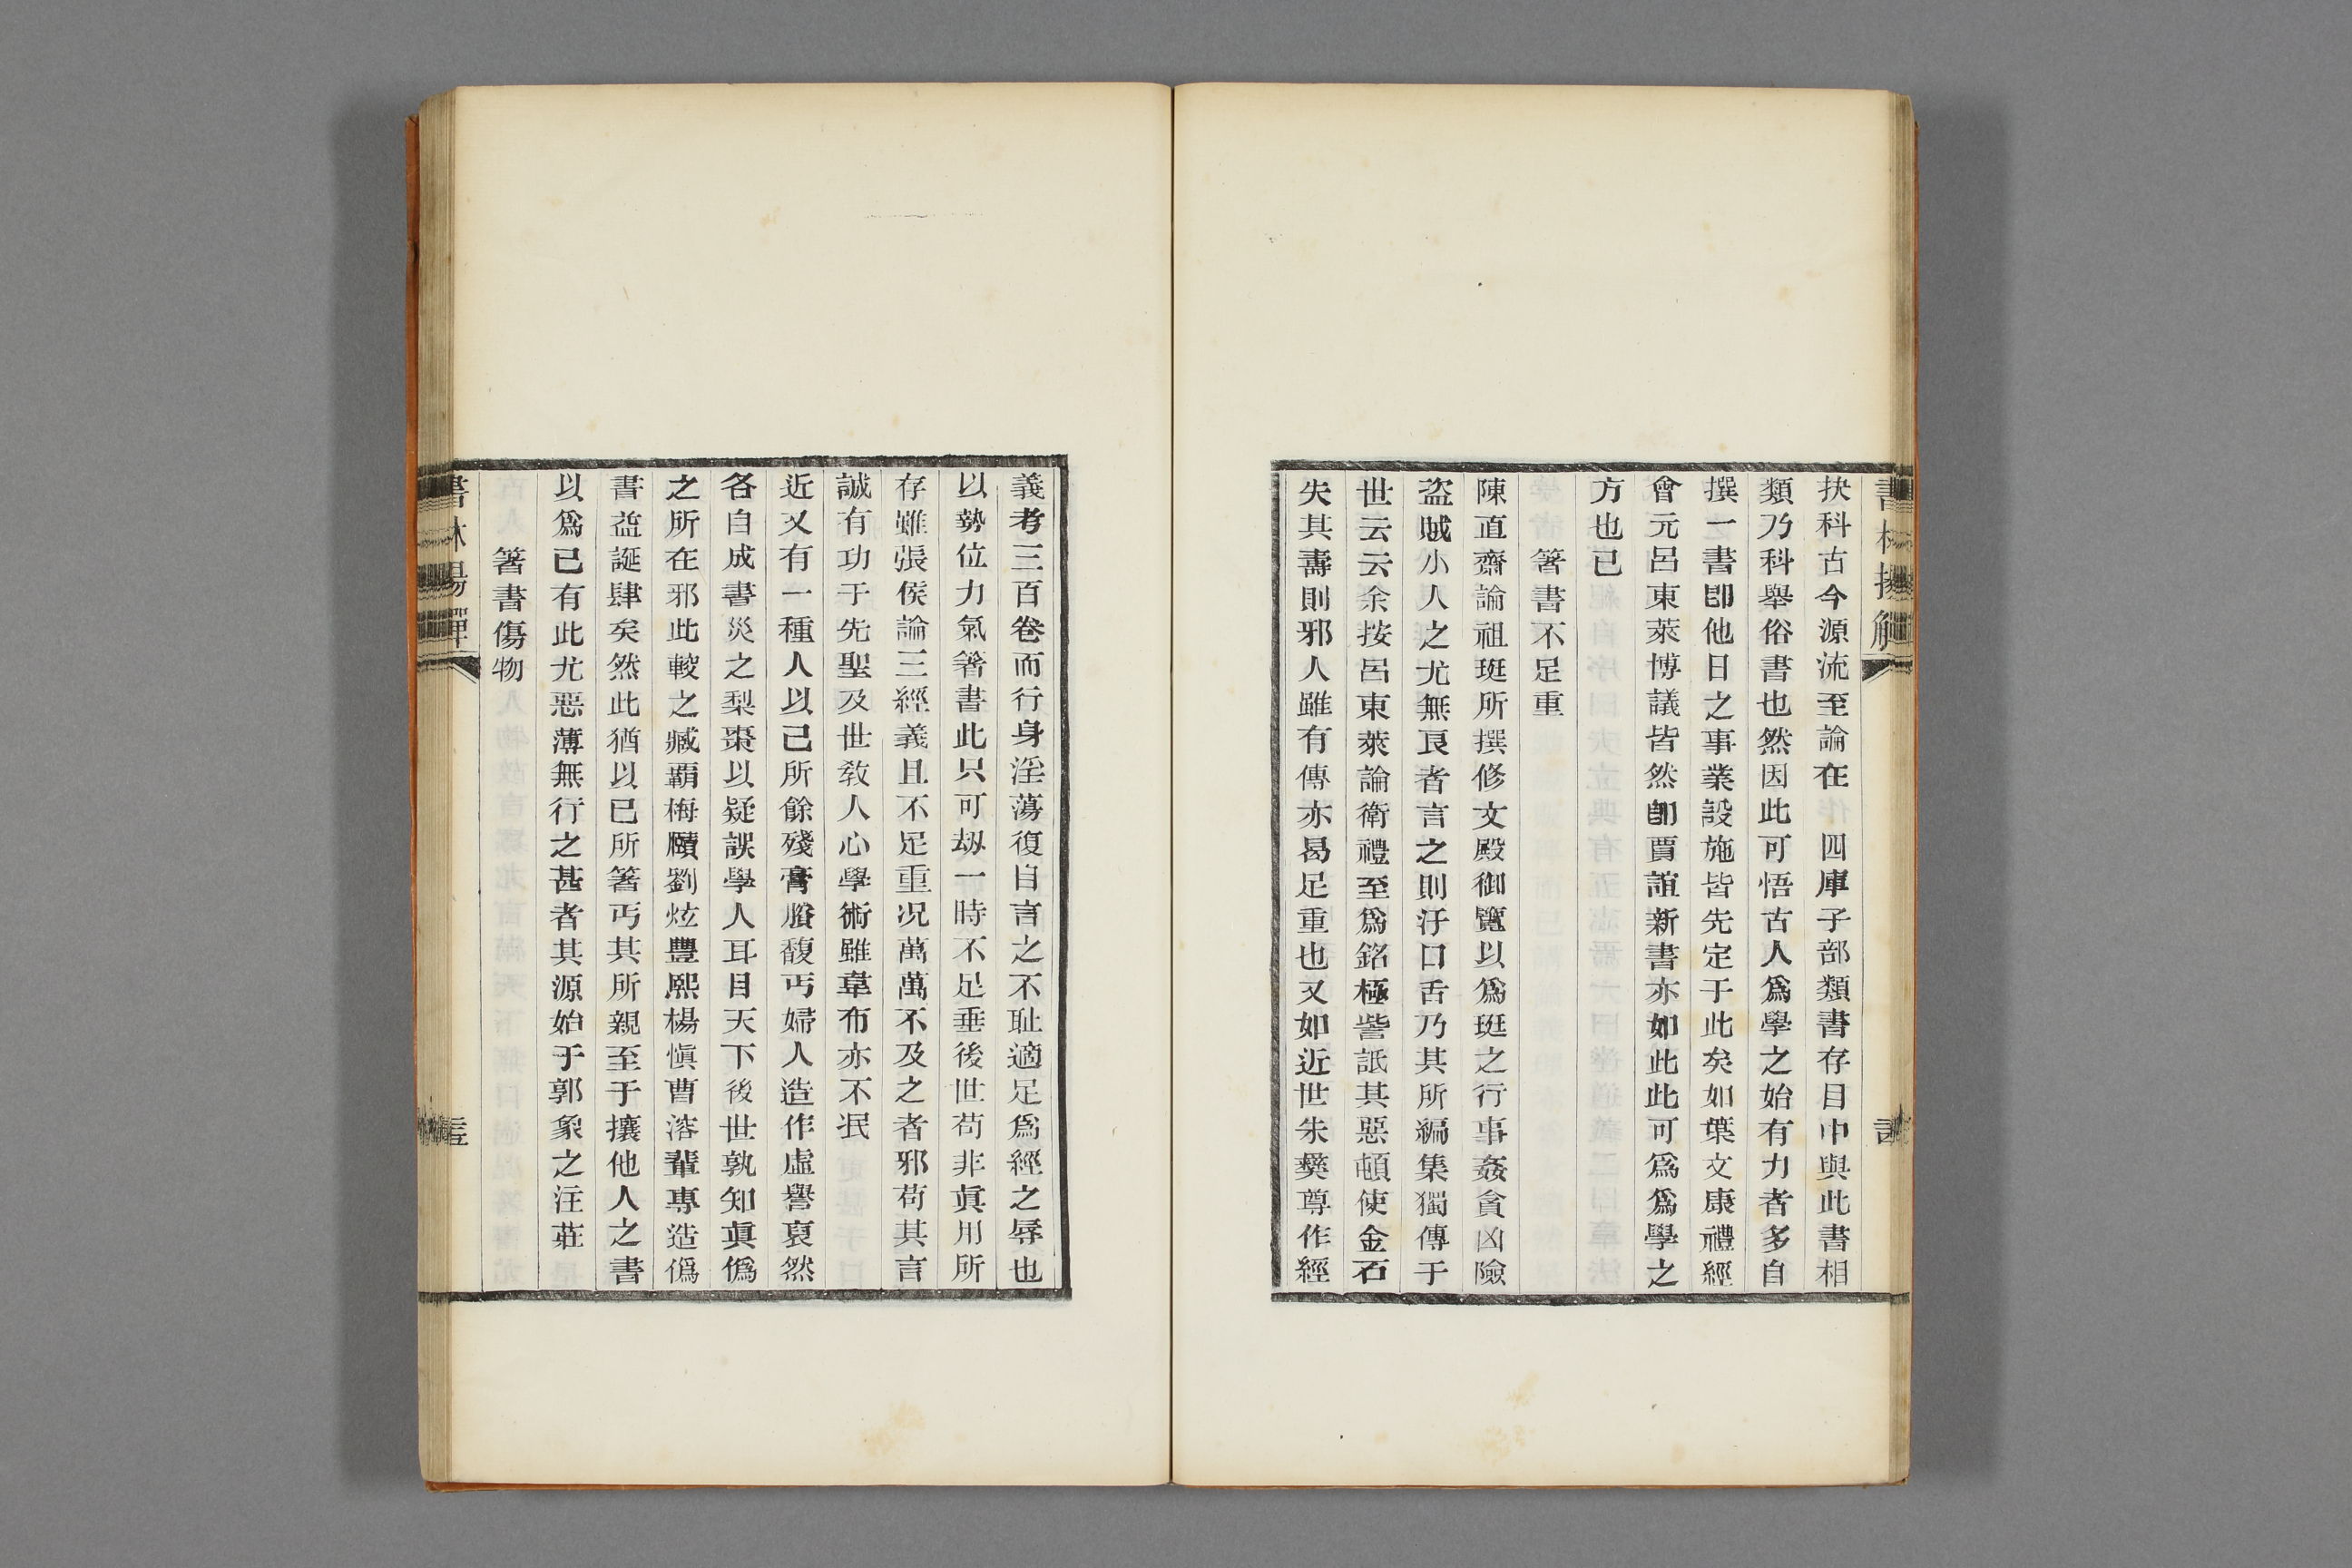 抉科古今源流至論在　四庫子部類書存目中與此書相
類乃科舉俗書也然因此可悟古人爲學之始有力者多自
撰一書卽他日之事業設施皆先定于此矣如葉文康禮經
會元呂東萊博議皆然卽賈誼新書亦如此此可爲爲學之
方也已
箸書不足重
陳直齋論祖珽所撰修文殿御覽以爲珽之行事姦貪凶險
盜賊小人之尤無良者言之則汙口舌乃其所編集獨傳于
世云云余按呂東萊論衛禮至爲銘極訾詆其惡頓使金石
失其壽則邪人雖有傳亦曷足重也又如近世朱彝尊作經
義考三百卷而行身淫蕩復自言之不恥適足爲經之辱也
以勢位力氣箸書此只可刼一時不足垂後世苟非眞用所
存雖張侯論三經義且不足重况萬萬不及之者邪苟其言
誠有功于先聖及世敎人心學術雖韋布亦不泯
近又有一種人以己所餘殘膏賸馥丐婦人造作虛譽裒然
各自成書災之梨棗以疑誤學人耳目天下後世孰知眞僞
之所在邪此較之臧霸梅賾劉炫豐熙楊愼曹溶輩專造僞
書益誕肆矣然此猶以已所箸丐其所親至于攘他人之書
以爲已有此尤惡薄無行之甚者其源始于郭象之注莊
箸書傷物